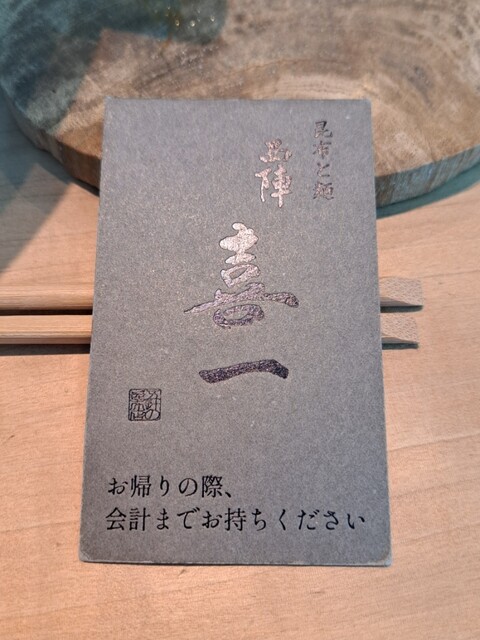 昆布と麺
西陣
喜一
お帰りの際、
会計までお持ちください